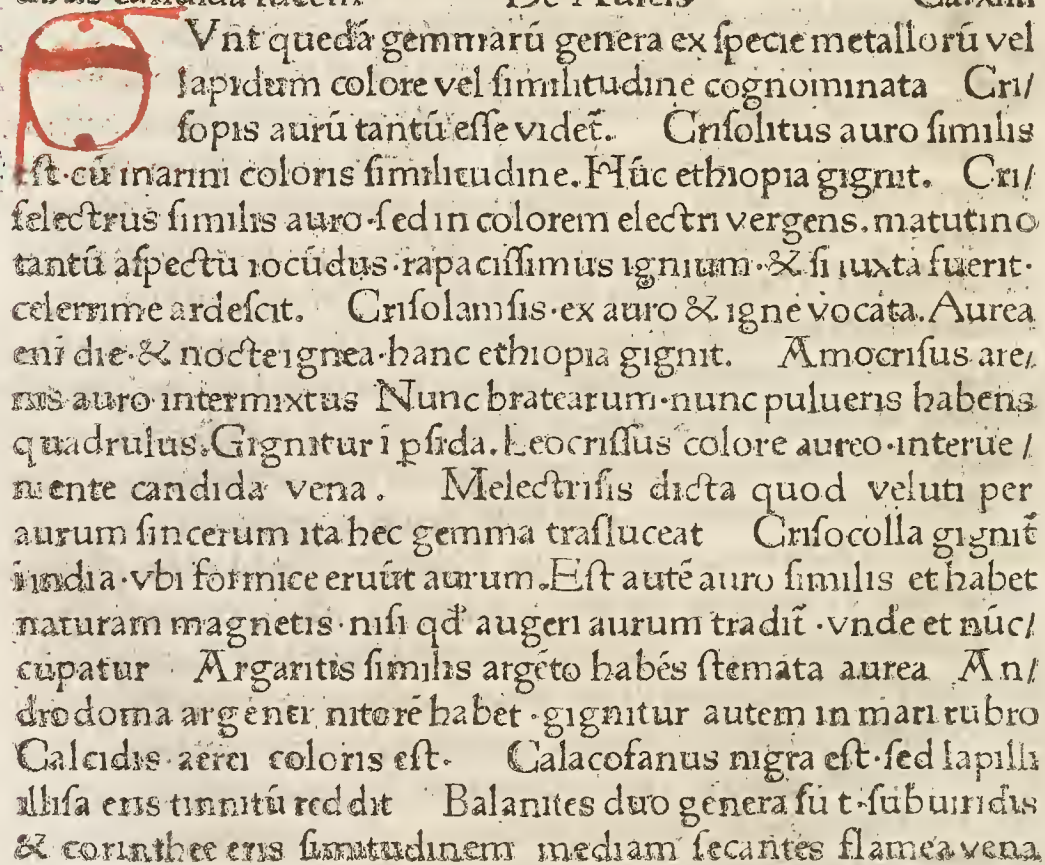 De Aureis
Vnt quedā gemmarū genera ex ſpecie metallorū vel
lapidum colore vel ſimilitudine cognominata Criſ/
ſopis aurū tantū eſſe videt̄. Criſolitus auro ſimilis
eſt·cū marini coloris ſimilitudine. Hūc ethiopia gignit. Cri/
ſelectrus ſimilis auro·ſed in colorem electri vergens. matutino
tantū aſpectu iocūdus·rapaciſſimus ignium·& ſi iuxta fuerit·
celerrime ardeſcit. Criſolamſis·ex auro & igne vocata. Aurea
eni die·& nocte ignea·hanc ethiopia gignit. Amocriſus are/
nis auro intermixtus Nunc bratearum·nunc pulueris habens
quadrulus. Gignitur i ꝑſida. Leocriſſus colore aureo·interue/
niente candida vena. Melectriſis dicta quod veluti per
aurum ſincerum ita hec gemma traſluceat Criſocolla gignit̄
i india·vbi formice eruūt aurum. Eſt autē auro ſimilis et habet
naturam magnetis·niſi qd̄ augeri aurum tradit̄·vnde et nūc/
cupatur Argaritis ſimilis argēto habēs ſtemata aurea An/
drodoma argenti nitorē habet·gignitur autem in mari rubro
Calcidis·aerei coloris eſt. Calacofanus nigra eſt·ſed lapilli
illiſa eris tinnitū reddit Balanites duo genera ſūt·ſubuiridis
& corinthee eris ſimitudinem mediam ſecantes flamea vena